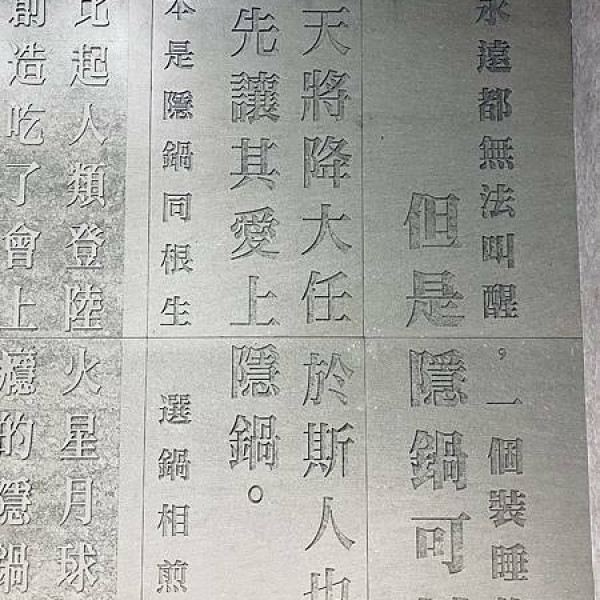 永遠都無法叫醒，一個裝睡
但是隱鍋可
天將降大任於斯人也
先讓其愛上隱鍋。
本是隱鍋同根生　選鍋相煎
比起人類登陸火星月球
創造吃了會上癮的隱鍋